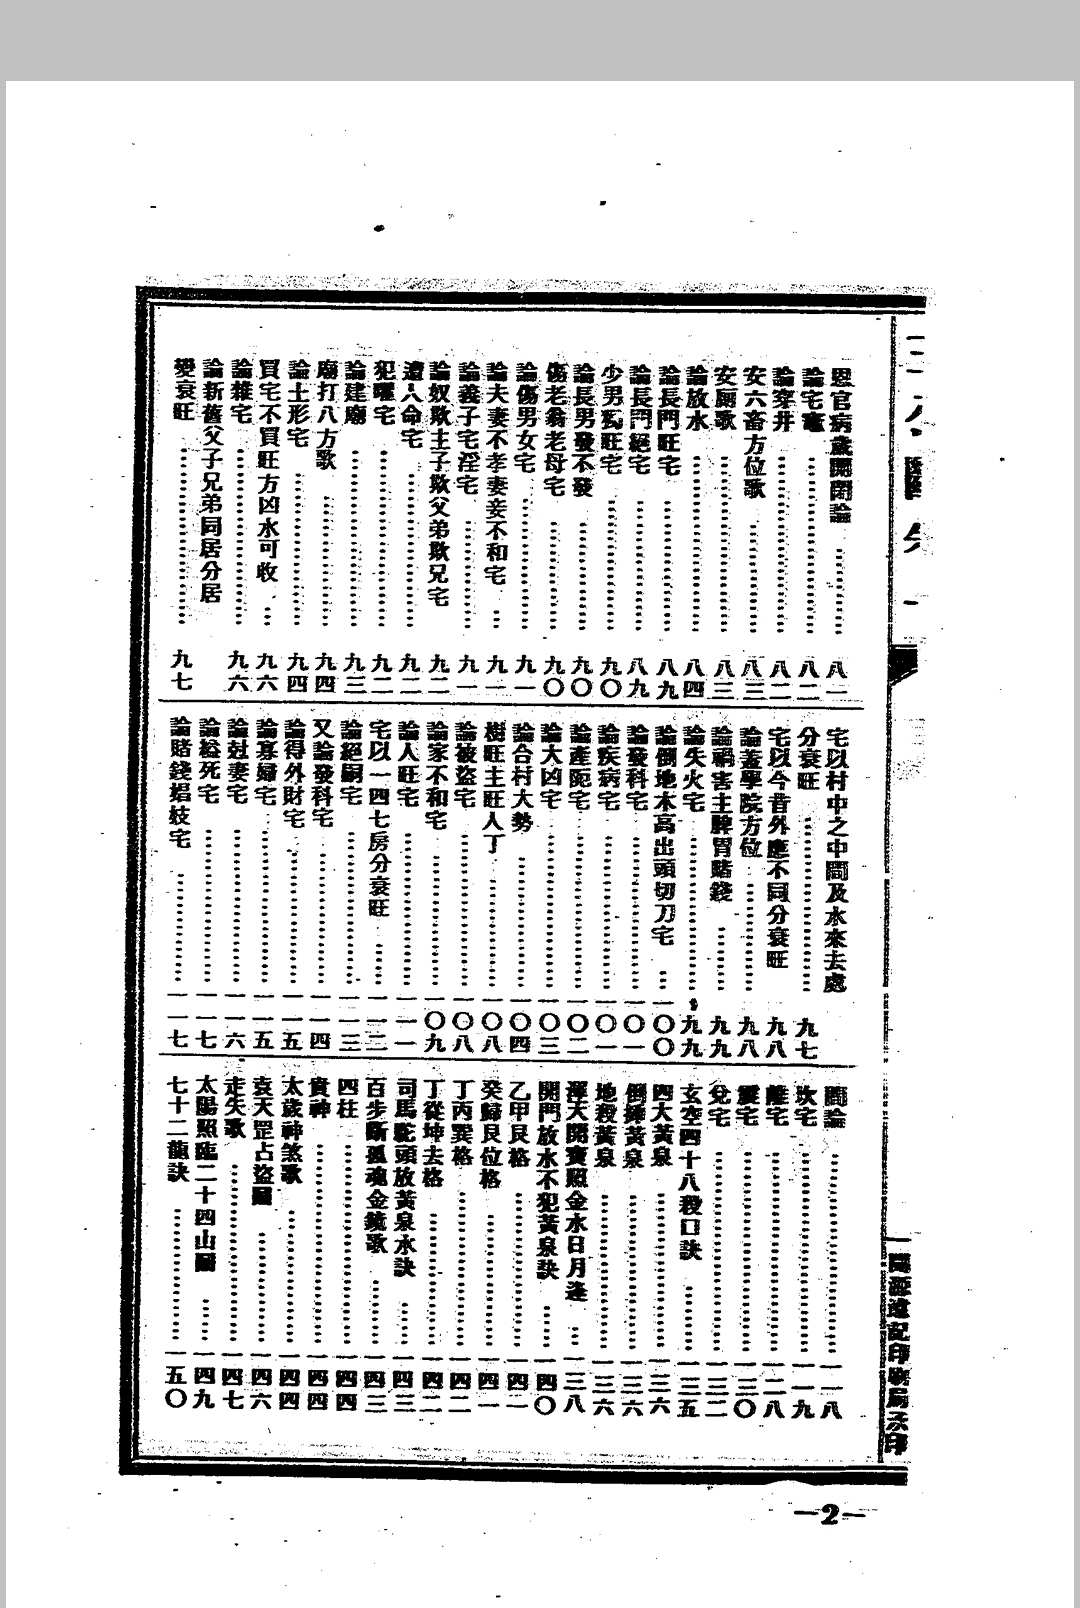 恩官病歲開閉論……八一
論宅竈……八二
論穿井……八二
安六畜方位歌……八三
安厠歌……八三
論放水……八四
論長門旺宅……八九
論長門絕宅……八九
少男獨旺宅……九〇
論長男發不發……九〇
傷老翁老母宅……九〇
論傷男女宅……九一
論夫妻不孝妻妾不和宅……九一
論義子宅淫宅……九一
論奴欺主子欺父弟欺兄宅……九二
遭人命宅……九二
犯曜宅……九二
論建廟……九三
廟打八方歌……九四
論土形宅……九四
買宅不買旺方凶水可收……九六
論雜宅……九六
論新舊父子兄弟同居分居
變衰旺……九七
宅以村中之中間及水來去處
分衰旺……九七
宅以今昔外應不同分衰旺……九八
論蓋學院方位……九八
論禍害主脾胃賭錢……九九
論失火宅……九九
論倒地木高出頭切刀宅……一〇〇
論發科宅……一〇一
論疾病宅……一〇一
論產阨宅……一〇二
論大凶宅……一〇三
論合村大勢……一〇四
樹旺主旺人丁……一〇八
論被盜宅……一〇八
論家不和宅……一〇九
論人旺宅……一一一
宅以一四七房分衰旺……一一二
論絕嗣宅……一一三
又論發科宅……一一四
論得外財宅……一一五
論寡婦宅……一一五
論尅妻宅……一一六
論縊死宅……一一七
論賭錢娼妓宅……一一七
間論……一一八
坎宅……一一九
離宅……一二八
震宅……一三〇
兌宅……一三二
玄空四十八殺口訣……一三五
四大黃泉……一三六
倒排黃泉……一三六
地殺黃泉……一三六
渾天開寶照金水日月逢……一三八
開門放水不犯黃泉訣……一四〇
乙甲艮格……一四一
癸歸艮位格……一四一
丁丙巽格……一四二
丁從坤去格……一四二
司馬駝頭放黃泉水訣……一四三
百步斷孤魂金鏡歌……一四三
四柱……一四四
貴神……一四四
太歲神煞歌……一四四
袁天罡占盜圖……一四六
走失歌……一四七
太陽照臨二十四山圖……一四九
七十二龍訣……一五〇
—2—